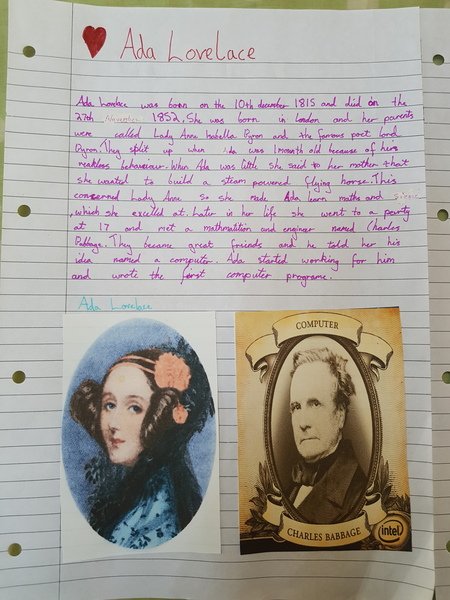 Ada Lovelace
Ada Lovelace was born on the 10th december 1815 and died on the
27th November 1852. She was born in London and her parents
were called Lady Anne Isabella Byron and the famous poet lord
Byron. They split up when Ada was 1 month old because of here
reckless behaviour. When Ada was little she said to her mother that
she wanted to build a steam powered flying horse. This
concerned Lady Anne so she made Ada learn maths and science
, which she excelled at. Later in her life she went to a party
at 17 and met a mathmatition and engineer named Charles
Babbage. They became great friends and he told her his
idea named a computer. Ada started working for him
and wrote the first computer programe.
Ada Lovelace
COMPUTER
CHARLES BABBAGE
intel